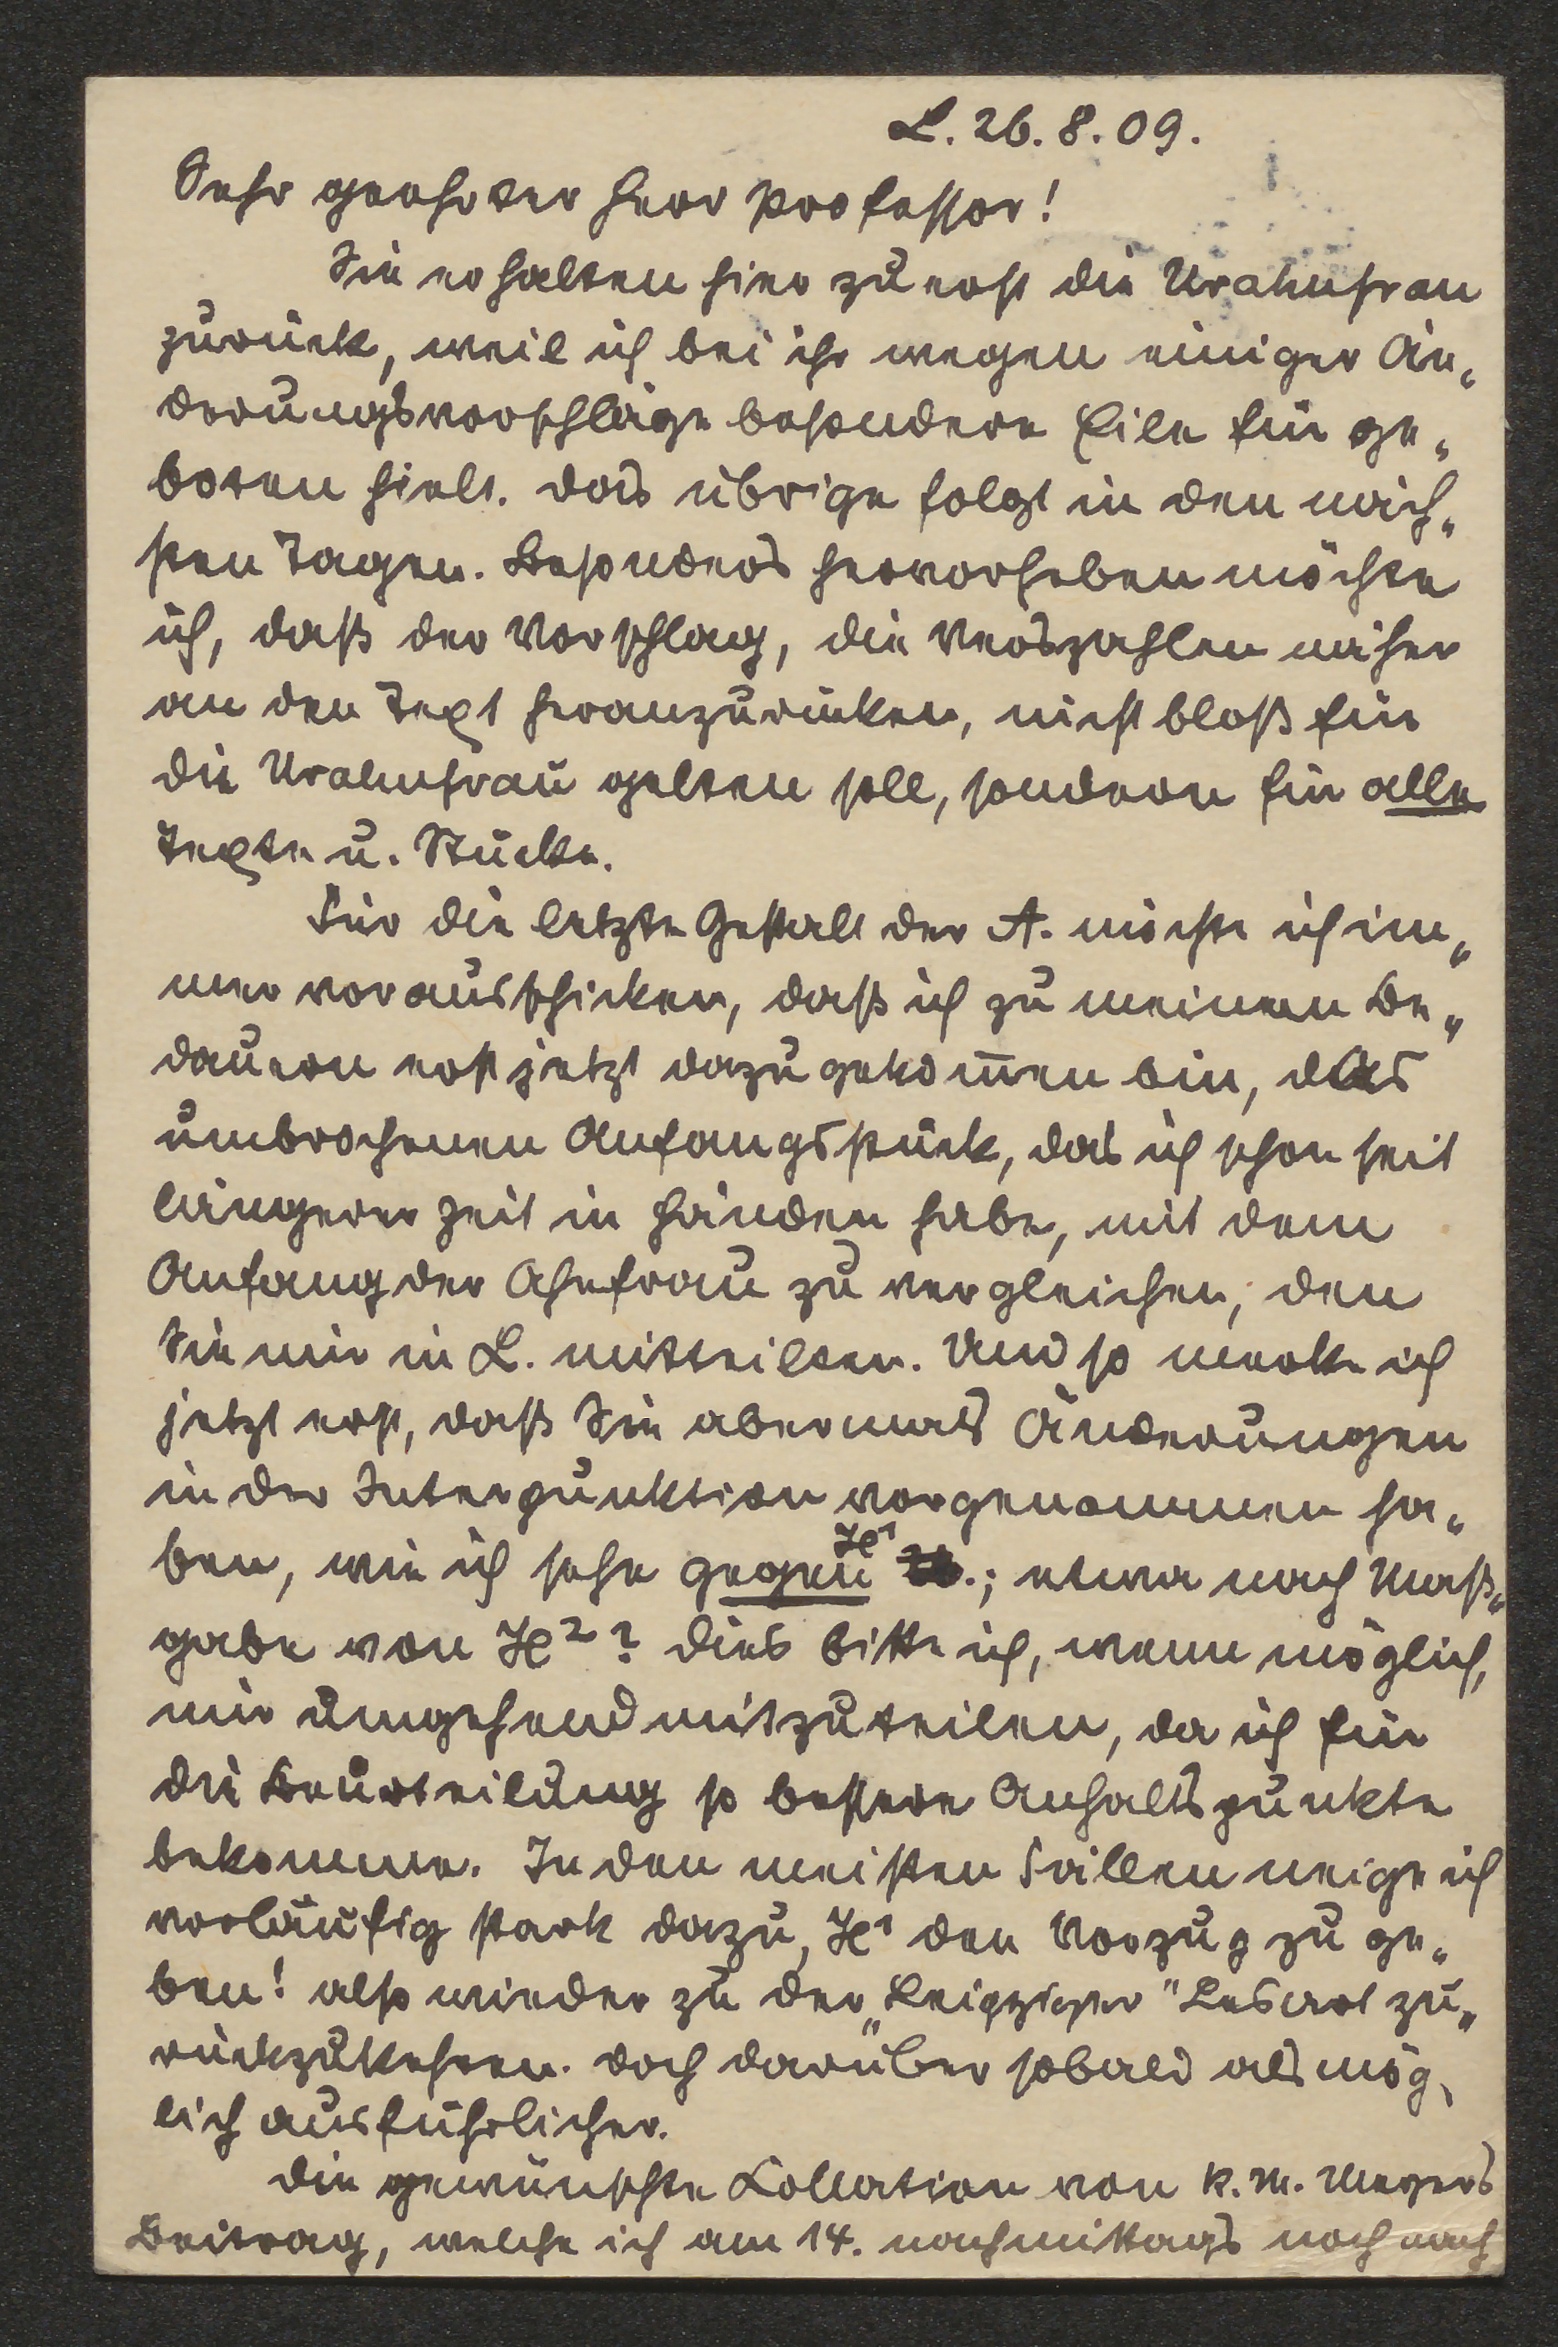 L. 26. 8. 09.
Sehr geehrter Herr Professor!
Sie erhalten hier zuerst die Urahnfrau
zurück, weil ich bei ihr wegen einiger Än„
derungsvorschläge besondere Eile für ge„
boten hielt. Das übrige folgt in den näch„
sten Tagen. Besonders hervorheben möchte
ich, daß der Vorschlag, die Verszahlen näher
an den Text heranzurücken, nicht bloß für
die Urahnfrau gelten soll, sondern für alle
Texte u. Stücke.
Für die letzte Gestalt der A. möchte ich im„
mer vorausschicken, daß ich zu meinem Be„
dauern erst jetzt dazu gekom̅en bin, das
umbrochenen Anfangsstück, das ich schon seit
längerer Zeit in Händen habe, mit dem
Anfang der Ahnfrau zu vergleichen, den
Sie mir in L. mitteilten. Und so merke ich
jetzt erst, daß Sie abermals Änderungen
in der Interpunktion vorgenommen ha„
ben, wie ich sehe gegen H¹.; etwa nach Maß„
gabe von H²? Dies bitte ich, wenn möglich,
mir umgehend mitzuteilen, da ich für
die Beurteilung so bessere Anhaltspunkte
bekomme. In den meisten Fällen neige ich
vorläufig stark dazu, H¹ den Vorzug zu ge„
ben! also wieder zu der „Leipziger" Lesart zu„
rückzukehren. Doch darüber sobald als mög„
lich ausführlicher.
Die gewünschte Collation von R. M. Meyers
Beitrag, welche ich am 14. nachmittags noch nach